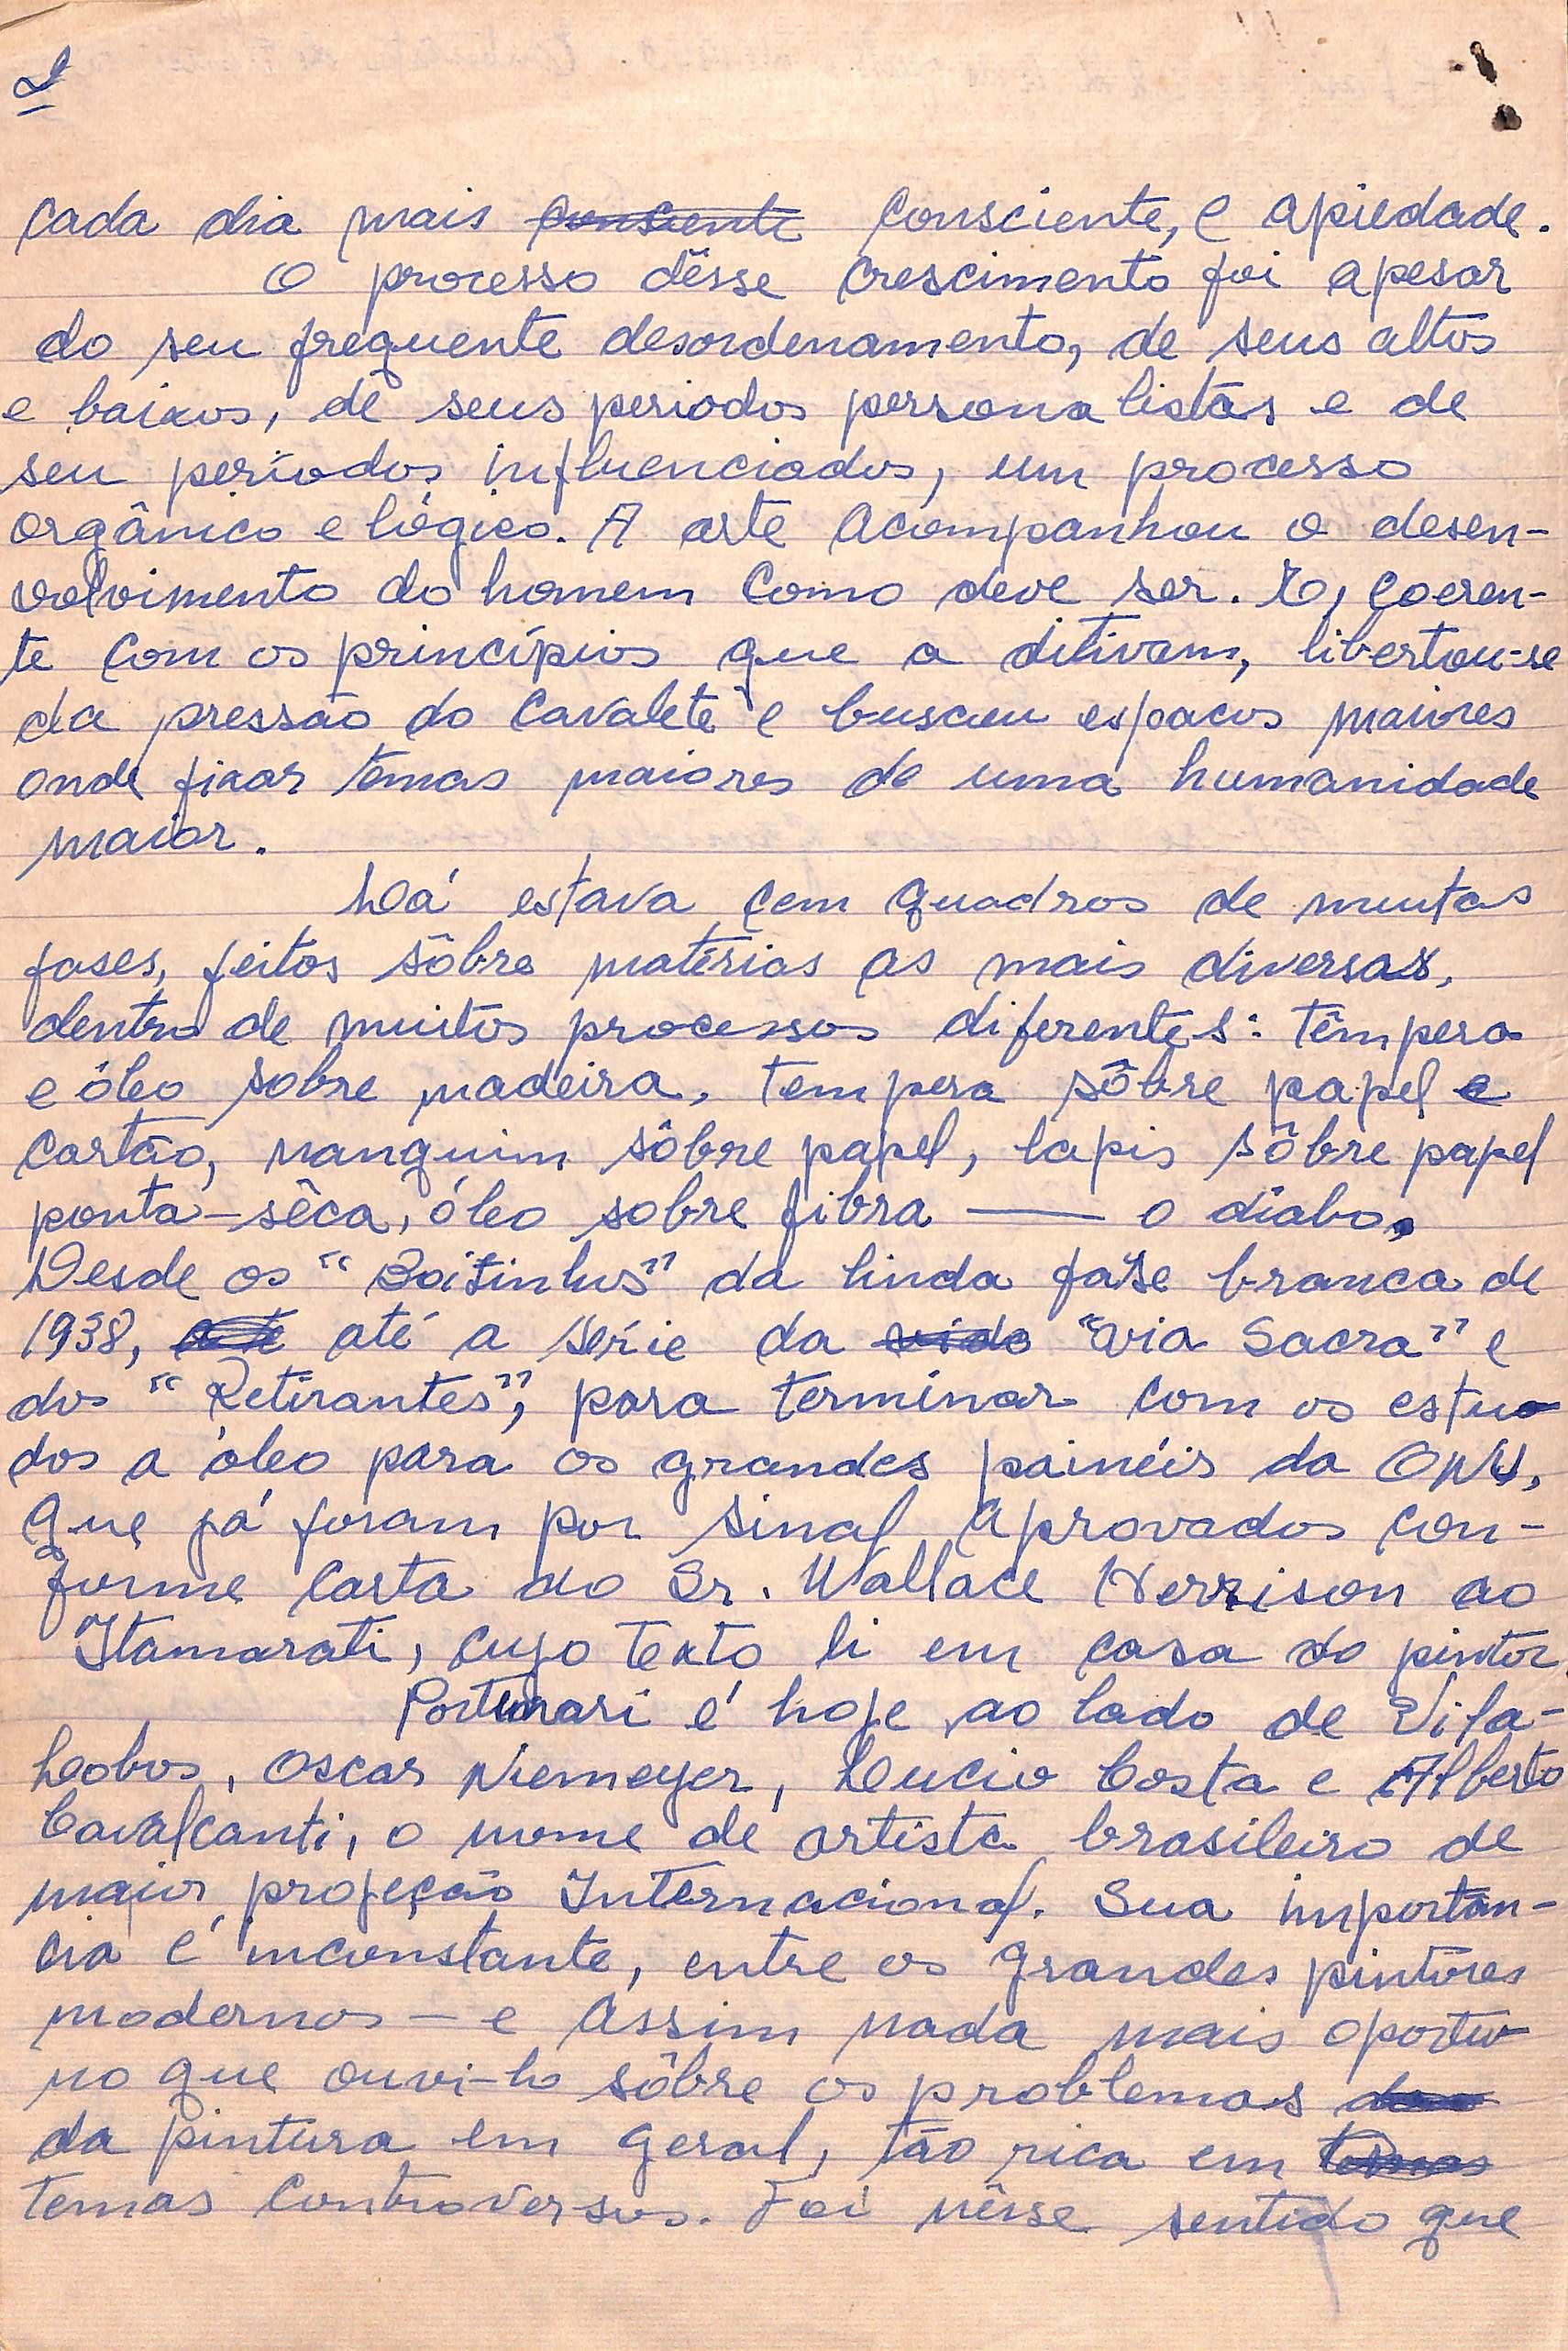 2
cada dia mais consciente consciente, e apiedade.
O processo dêsse crescimento foi apesar
do seu frequente desordenamento, de seus altos
e baixos, de seus periodos personalistas e de
seu períodos influenciados, um processo
orgânico e lógico. A arte acompanhou o desen-
volvimento do homem como deve ser. E, coeren-
te com os princípios que a ditivam, libertou-se
da pressão do cavalete e buscou espacos maiores
onde fixar temas maiores de uma humanidade
maior.
Lá estava cem quadros de muitas
fases, feitos sôbre matérias as mais diversas,
dentro de muitos processos diferentes: têmpera
e óleo sobre madeira, tempera sôbre papel e
cartão, nanquim sôbre papel, lapis sôbre papel
ponta-sêca, óleo sobre fibra — o diabo.
Desde os "Boisinhos" da linda fase branca de
1938, até a série da "via Sacra" e
dos "Retirantes", para terminar com os estu-
dos a óleo para os grandes painéis da ONU,
que já foram por sinal aprovados con-
forme carta do Sr. Wallace Herrison ao
Itamarati, cujo texto li em casa do pintor.
Portinari é hoje, ao lado de Vila-
Lobos, Oscar Niemeyer, Lucio Costa e Alberto
Cavalcanti, o nome de artista brasileiro de
maior projeção Internacional. Sua importân-
cia é inconstante, entre os grandes pintores
modernos — e assim nada mais oportu
no que ouvi-lo sôbre os problemas
da pintura em geral, tão rica em temas
temas controversos. Foi nêsse sentido que